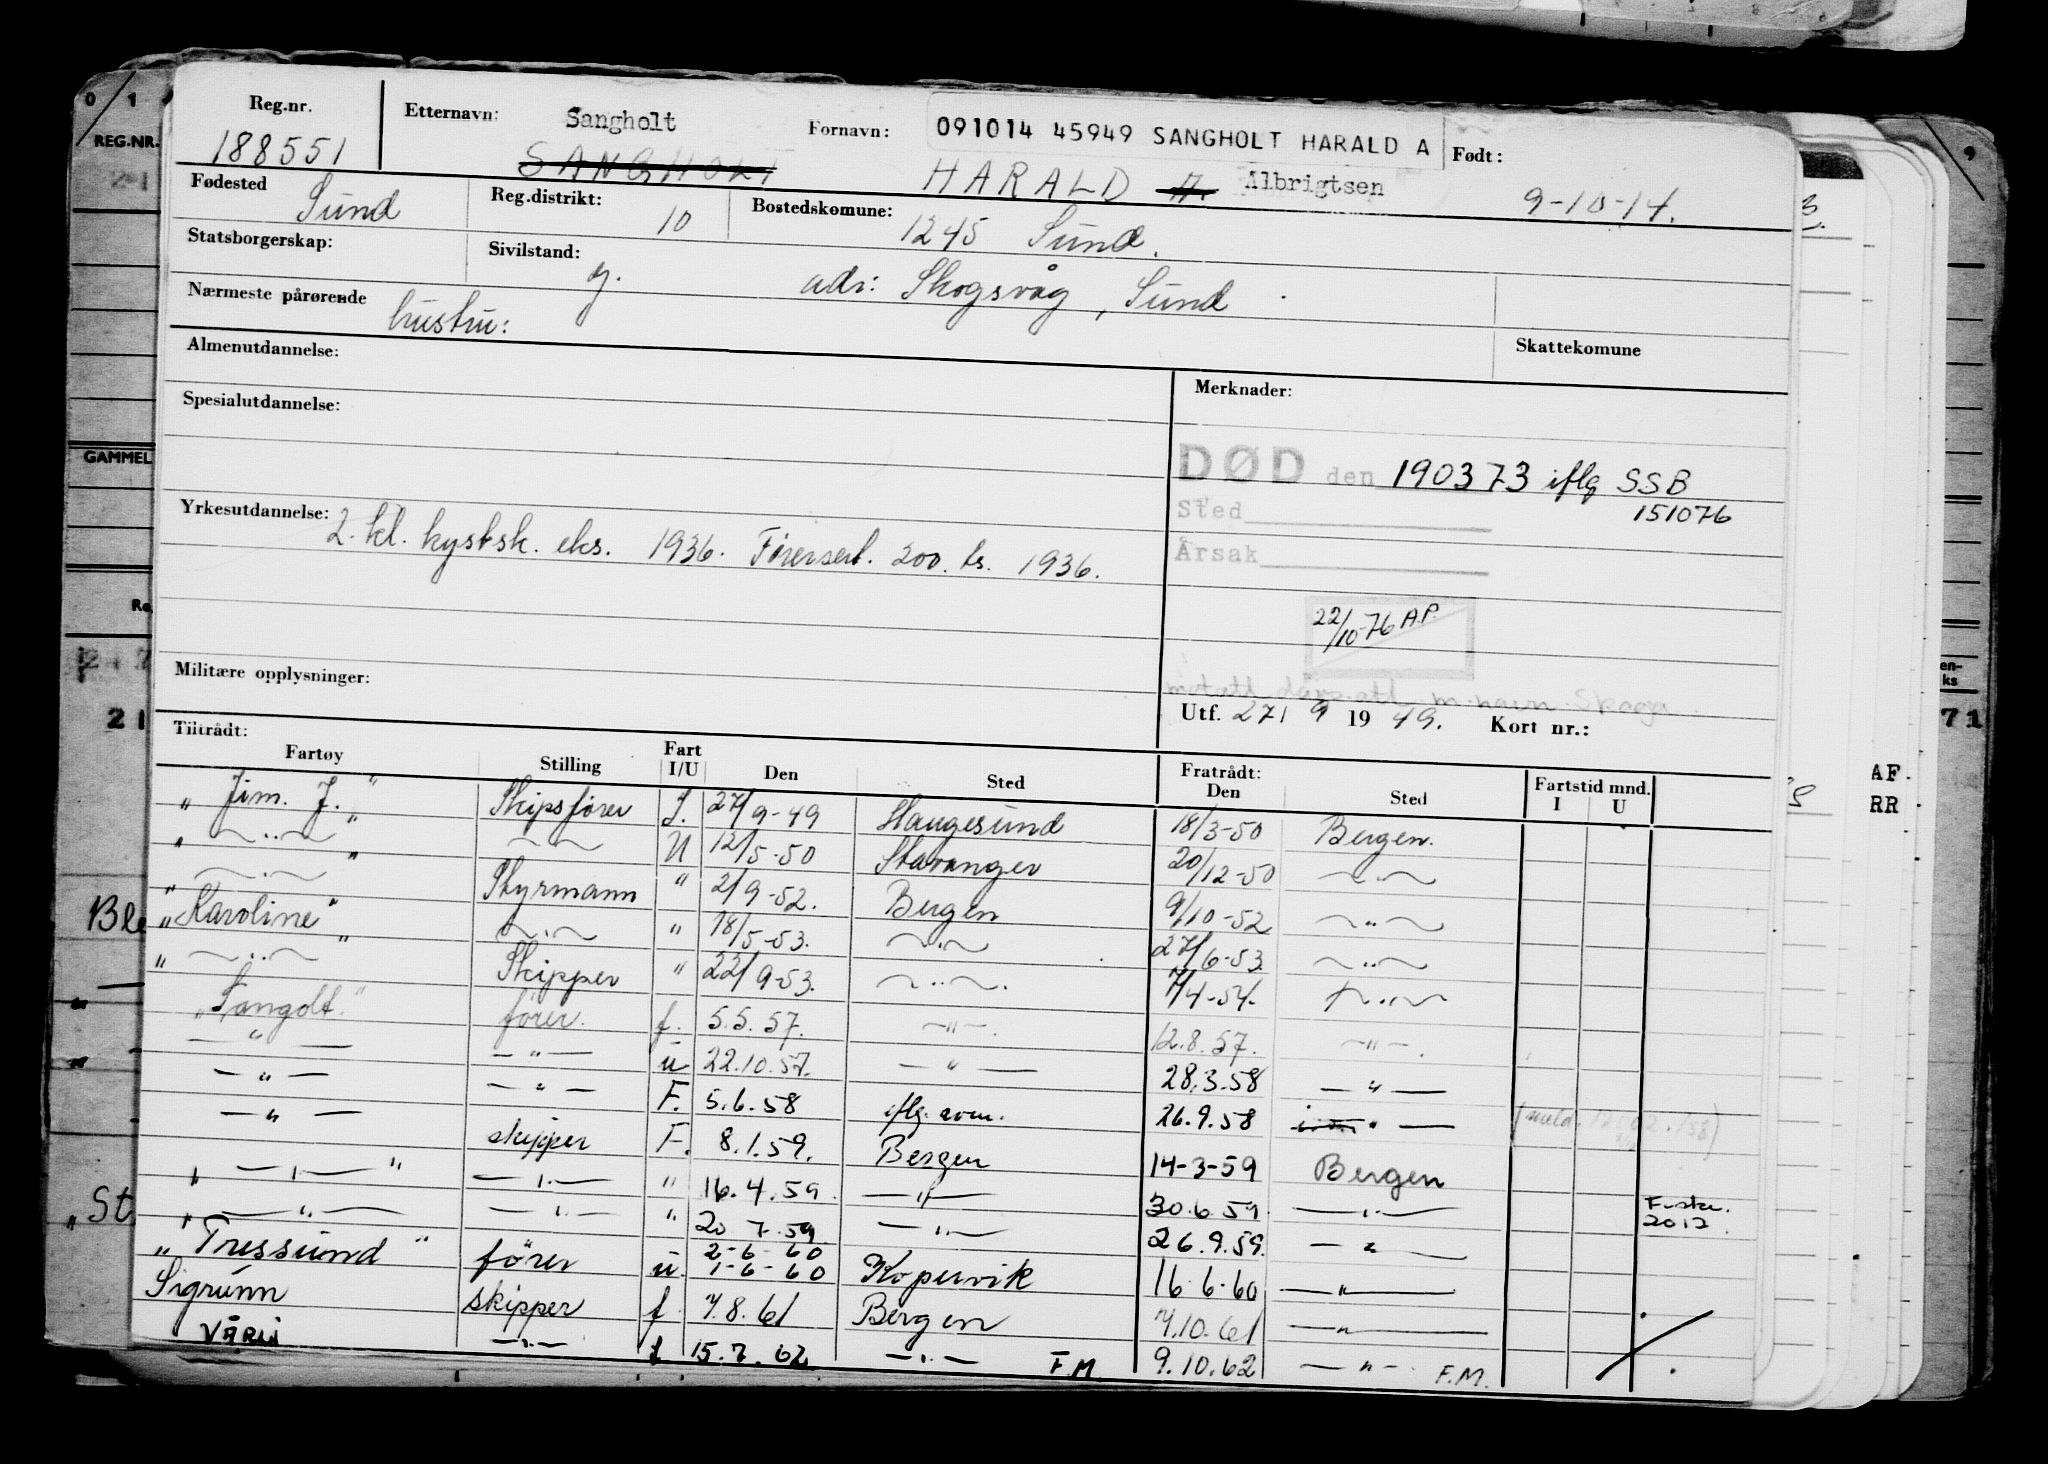 Reg.nr. 188551
Etternavn: Sangholt
SANGHOLT
Fornavn: 091014 45949 SANGHOLT HARALD A
HARALD A. Albrigtsen
Født: 9-10-14.
Fødested Sund
Reg.distrikt: 10
Bostedskomune: 1245 Sund.
Statsborgerskap:
Sivilstand: g.
adr: Skogsvåg, Sund
Nærmeste pårørende hustru:
Skattekomune
Almenutdannelse:
Merknader:
Spesialutdannelse:
DØD den 190373 iflg SSB
151076
Sted
Årsak
Yrkesutdannelse: 2. kl. kystsk. eks. 1936. Förersert. 200. ts. 1936.
22/10-76 A.P.
Militære opplysninger:
m. navn Skaga
Utf. 27/ 9 1949. Kort nr.:
Tiltrådt: Fratrådt: Fartstid mnd.
Fartøy Stilling Fart I/U Den Sted Den Sted I U
"Jim. J." Skipsförer I. 27/9-49 Haugesund 18/3-50 Bergen.
" —"— " —"— U 12/5-50 Stavanger 20/12-50 —"—
" —"— " Styrmann " 2/9-52. Bergen 9/10-52 —"—
"Karoline" —"— " 18/5-53. —"— 27/6-53 —"—
" —"— " Skipper " 22/9-53. —"—. 7/4-54. —"—
"Sangolt" förer. f. 5.5.57. —"—. 12.8.57. —"—.
—"— —"— u 22.10.57. —"— 28.3.58 —"—
—"— —"— F. 5.6.58 iflg. 26.9.58 —"—
—"— skipper F. 8.1.59. Bergen 14-3-59 Bergen
" —"— " —"— " 16.4.59. —"— 30.6.59 —"—
" —"— —"— " 20 7.59. —"— 26.9.59. —"— 2012
2-6-60
"Tressund" förer u. 1-6-60 Kopervik 16.6.60 —"—
Sigrunn skipper f. 7.8.61 Bergen 7.10.61 —"—
VÅRLI —"— f 15.7.62 —"— F.M. 9.10.62 —"— F.M.
0/1
REG.NR.
GAMMEL
21
Ble
"St.
9
71
AF.
RR.